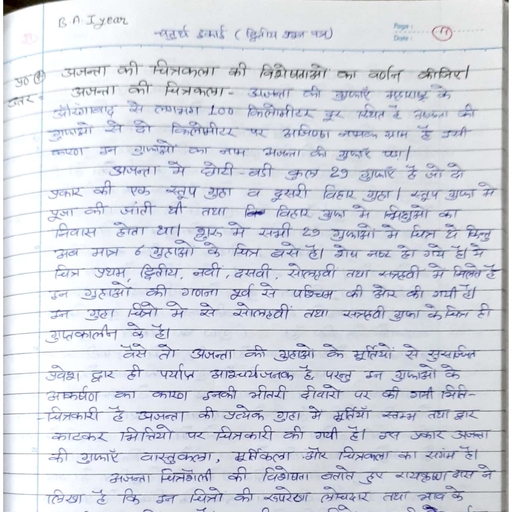 B.A. I year
चतुर्थ इकाई (द्वितीय प्रश्न पत्र)
Page:
Date: 11
प्र० अजन्ता की चित्रकला की विशेषताओं का वर्णन कीजिए।
उत्तर- अजन्ता की चित्रकला - अजन्ता की गुफाएँ महाराष्ट्र के
औरंगाबाद से लगभग 100 किलोमीटर दूर स्थित है अजन्ता की
गुफाओं से दो किलोमीटर पर अजिण्ठा नामक ग्राम है उसी
कारण इन गुफाओं का नाम अजन्ता की गुफाएँ पड़ा।
अजन्ता में छोटी-बड़ी कुल 29 गुफाएँ है जो दो
प्रकार की एक स्तूप गुहा व दूसरी विहार गुहा। स्तूप गुफा में
पूजा की जाती थी तथा विहार गुफा में भिक्षुओं का
निवास होता था। शुरू में सभी 29 गुफाओं में चित्र थे किन्तु
अब मात्र 6 गुहाओं के चित्र बचे है। शेष नष्ट हो गये है। ये
चित्र प्रथम, द्वितीय, नवीं, दसवीं, सोलहवीं तथा सत्रहवीं में मिलते है
इन गुहाओं की गणना पूर्व से पश्चिम की ओर की गयी है।
इन गुहा चित्रों में से सोलहवीं तथा सत्रहवीं गुफा के चित्र ही
गुप्तकालीन के है।
वैसे तो अजन्ता की गुहाओं के मूर्तियों से सुसज्जित
प्रवेश द्वार ही पर्याप्त आश्चर्यजनक है परन्तु इन गुफाओं के
आकर्षण का कारण इनकी भीतरी दीवारों पर की गयी भित्ति-
-चित्रकारी है अजन्ता की प्रत्येक गुहा में मूर्तियाँ स्तम्भ तथा द्वार
काटकर भित्तियों पर चित्रकारी की गयी है। इस प्रकार अजन्ता
की गुफाएँ वास्तुकला, मूर्तिकला और चित्रकला का संगम है।
अजन्ता चित्रशैली की विशेषता बताते हुए रायकृष्ण दास ने
लिखा है कि इन चित्रों की रूपरेखा लोचदार तथा भाव के